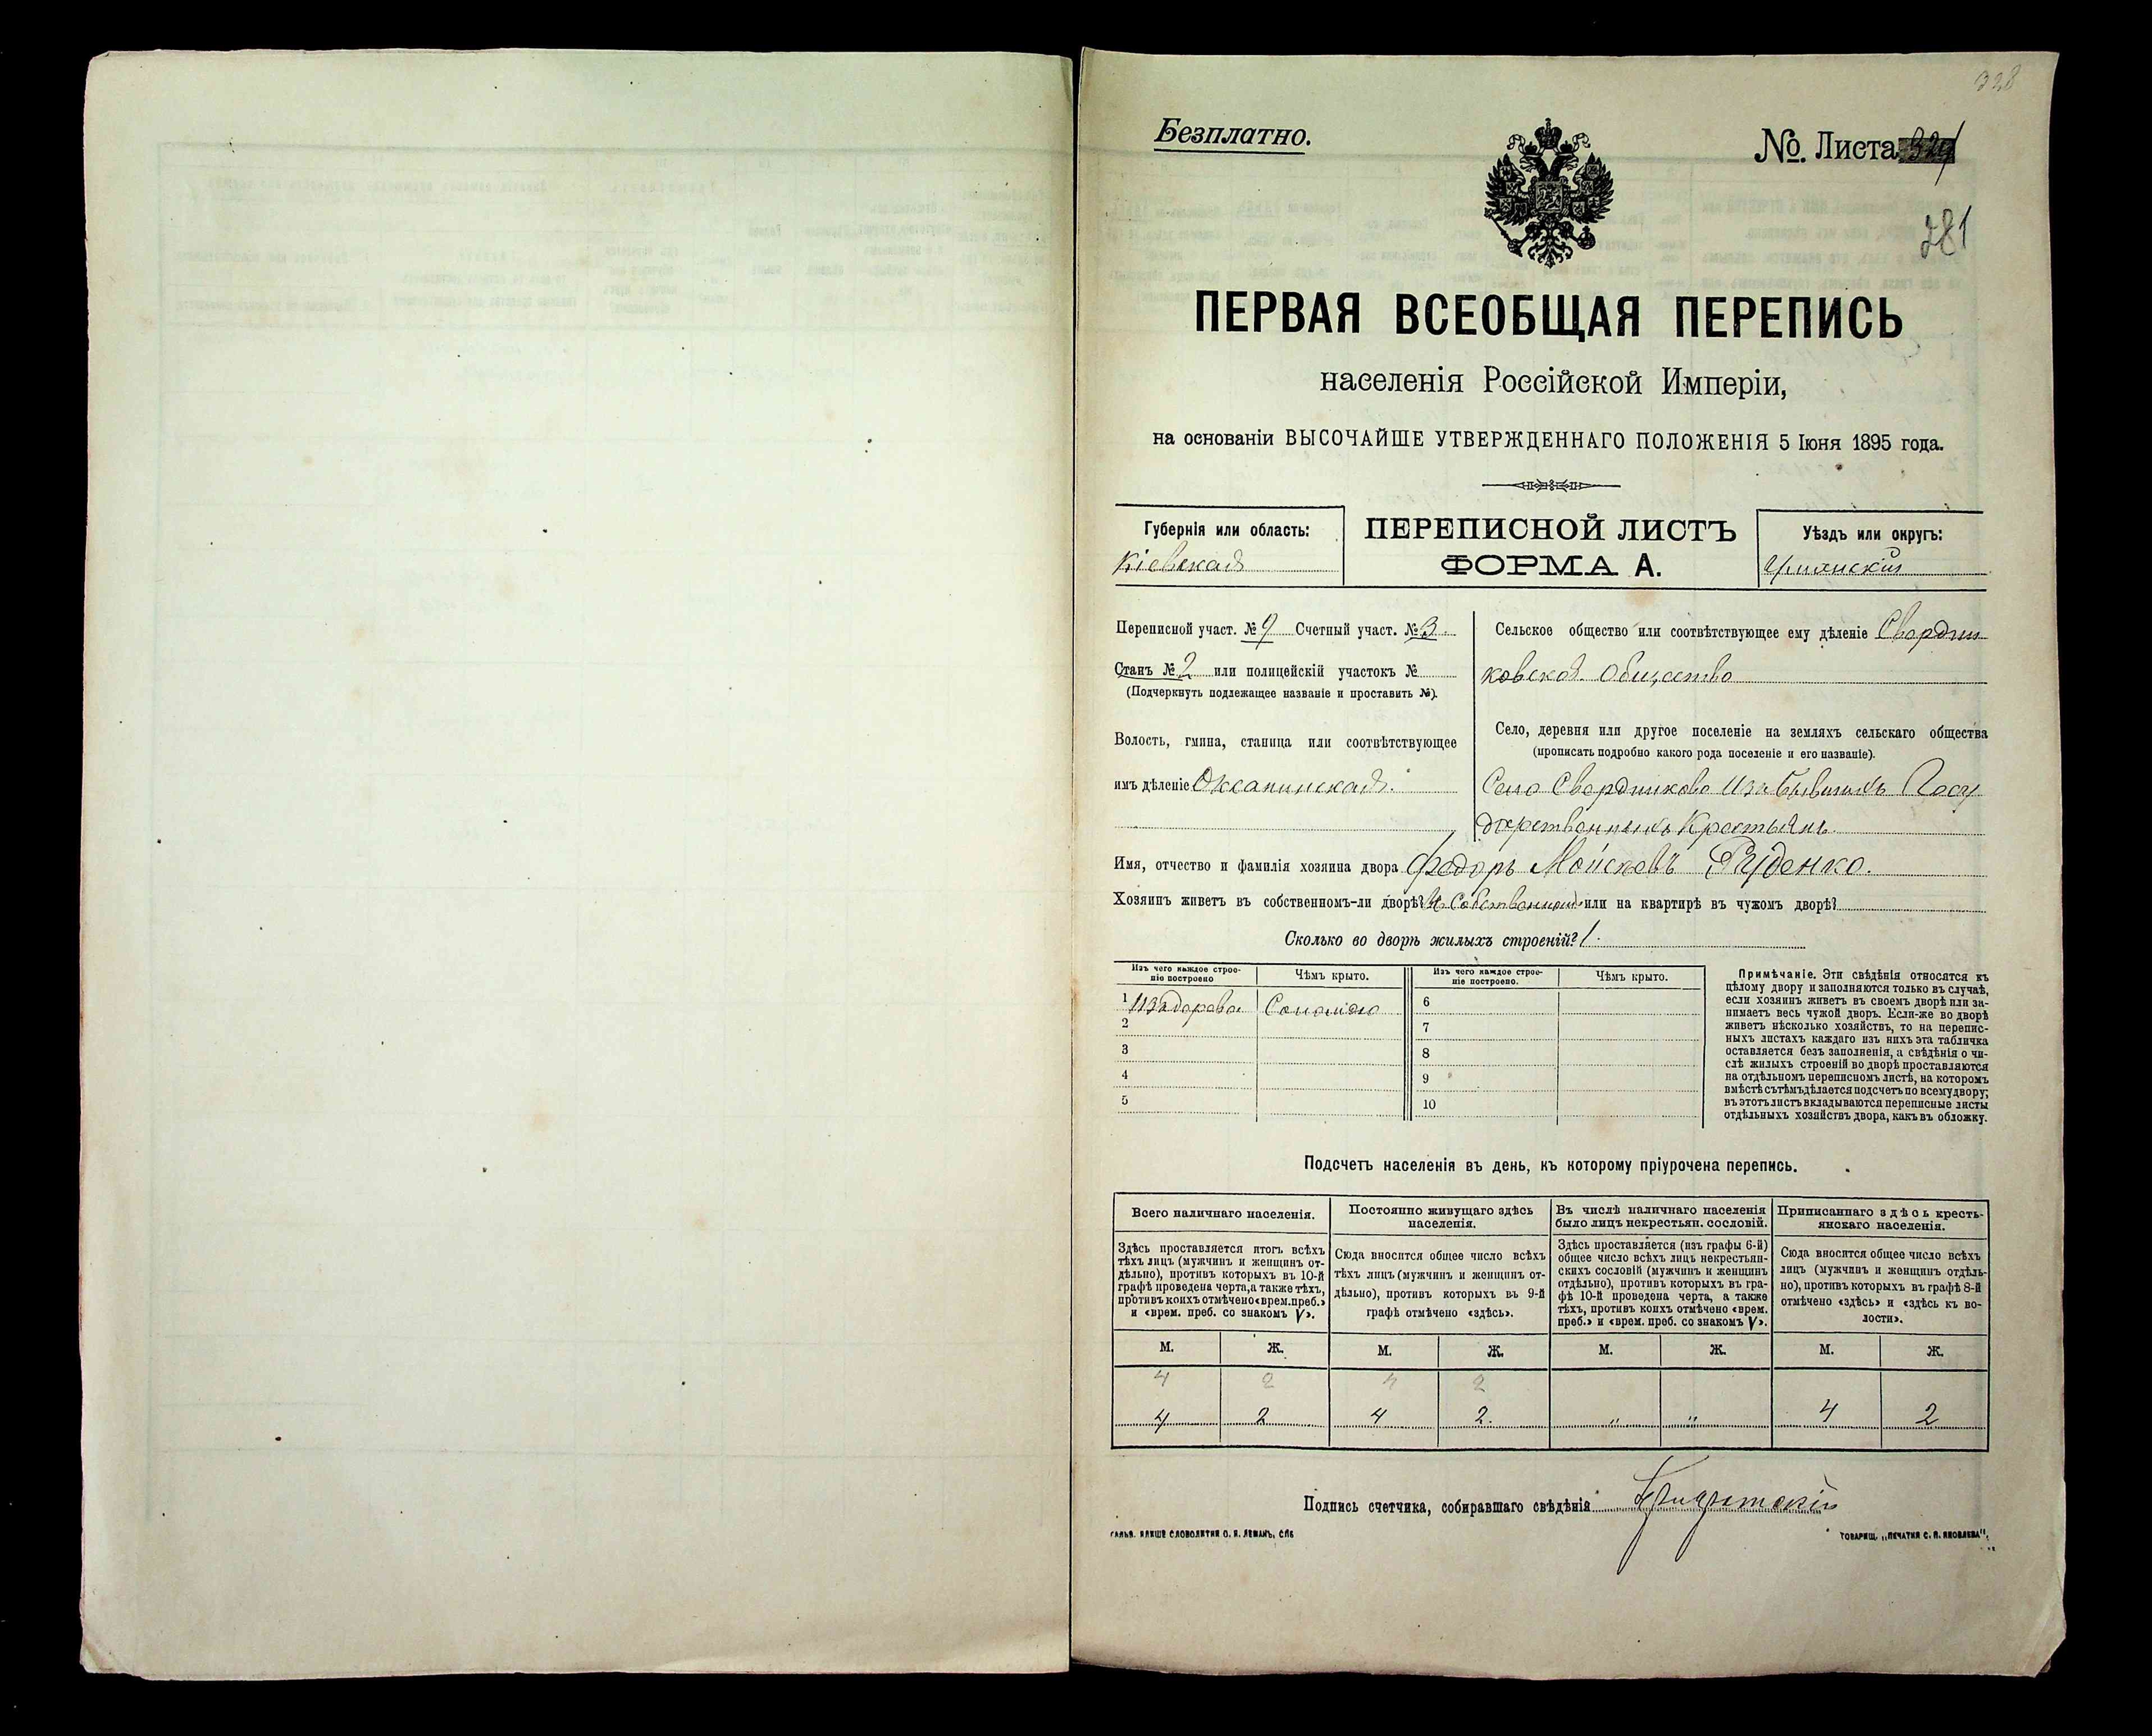 328
Безплатно.
№. Листа
281
ПЕРВАЯ ВСЕОБЩАЯ ПЕРЕПИСЬ
населенія Россійской Имперіи,
на основаніи ВЫСОЧАЙШЕ УТВЕРЖДЕННАГО ПОЛОЖЕНІЯ 5 Іюня 1895 года.
Губернія или область:
Кіевская
ПЕРЕПИСНОЙ ЛИСТЪ
ФОРМА А.
Уѣздъ или округъ:
Уманскій
Переписной участ. № 9 Счетный участ. № 3.
Станъ № 2 или полицейскій участокъ №
(Подчеркнуть подлежащее названіе и проставить №).
Волость, гмина, станица или соотвѣтствующее
имъ дѣленіе Оксанинская.
Сельское общество или соотвѣтствующее ему дѣленіе Свердли
ковское Общество
Село, деревня или другое поселеніе на земляхъ сельскаго общества
(прописать подробно какого рода поселеніе и его названіе).
Село Свердликово Изъ бывшихъ Госу
дарственныхъ Крестьянъ
Имя, отчество и фамилія хозяина двора Федоръ Мойсѣевъ Руденко.
Хозяинъ живетъ въ собственномъ-ли дворѣ? или на квартирѣ въ чужомъ дворѣ?
Сколько во дворѣ жилыхъ строеній? 1.
Изъ чего каждое строеніе построено
Чѣмъ крыто.
Изъ чего каждое строеніе построено.
Чѣмъ крыто.
1 Изъ дерева Соломою
2
3
4
5
6
7
8
9
10
Примѣчаніе. Эти свѣдѣнія относятся къ
цѣлому двору и заполняются только въ случаѣ,
если хозяинъ живетъ въ своемъ дворѣ или за-
нимаетъ весь чужой дворъ. Если-же во дворѣ
живетъ нѣсколько хозяйствъ, то на перепис-
ныхъ листахъ каждаго изъ нихъ эта табличка
оставляется безъ заполненія, а свѣдѣнія о чи-
слѣ жилыхъ строеній во дворѣ проставляются
на отдѣльномъ переписномъ листѣ, на которомъ
вмѣстѣ съ тѣмъ дѣлается подсчетъ по всему двору;
въ этотъ листъ вкладываются переписные листы
отдѣльныхъ хозяйствъ двора, какъ въ обложку.
Подсчетъ населенія въ день, къ которому пріурочена перепись.
Всего наличнаго населенія.
Здѣсь проставляется итогъ всѣхъ
тѣхъ лицъ (мужчинъ и женщинъ от-
дѣльно), противъ которыхъ въ 10-й
графѣ проведена черта, а также тѣхъ,
противъ коихъ отмѣчено «врем. преб.»
и «врем. преб. со знакомъ V».
Постоянно живущаго здѣсь
населенія.
Сюда вносится общее число всѣхъ
тѣхъ лицъ (мужчинъ и женщинъ от-
дѣльно), противъ которыхъ въ 9-й
графѣ отмѣчено «здѣсь».
Въ числѣ наличнаго населенія
было лицъ некрестьян. сословій.
Здѣсь проставляется (изъ графы 6-й)
общее число всѣхъ лицъ некрестьян-
скихъ сословій (мужчинъ и женщинъ
отдѣльно), противъ которыхъ въ гра-
фѣ 10-й проведена черта, а также
тѣхъ, противъ коихъ отмѣчено «врем.
преб.» и «врем. преб. со знакомъ V».
Приписаннаго здѣсь кресть-
янскаго населенія.
Сюда вносится общее число всѣхъ
лицъ (мужчинъ и женщинъ отдѣль-
но), противъ которыхъ въ графѣ 8-й
отмѣчено «здѣсь» и «здѣсь къ во-
лости».
М. Ж. М. Ж. М. Ж. М. Ж.
4 2 4 2
4 2 4 2. " " 4 2
Подпись счетчика, собиравшаго свѣдѣнія
ТОВАРИЩ. „ПЕЧАТНЯ С. П. ЯКОВЛЕВА".